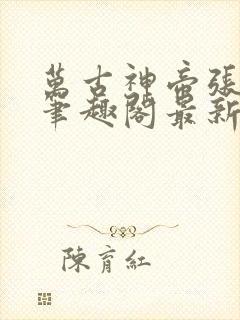 萬古神帝張
筆趣閣最新
陳育紅